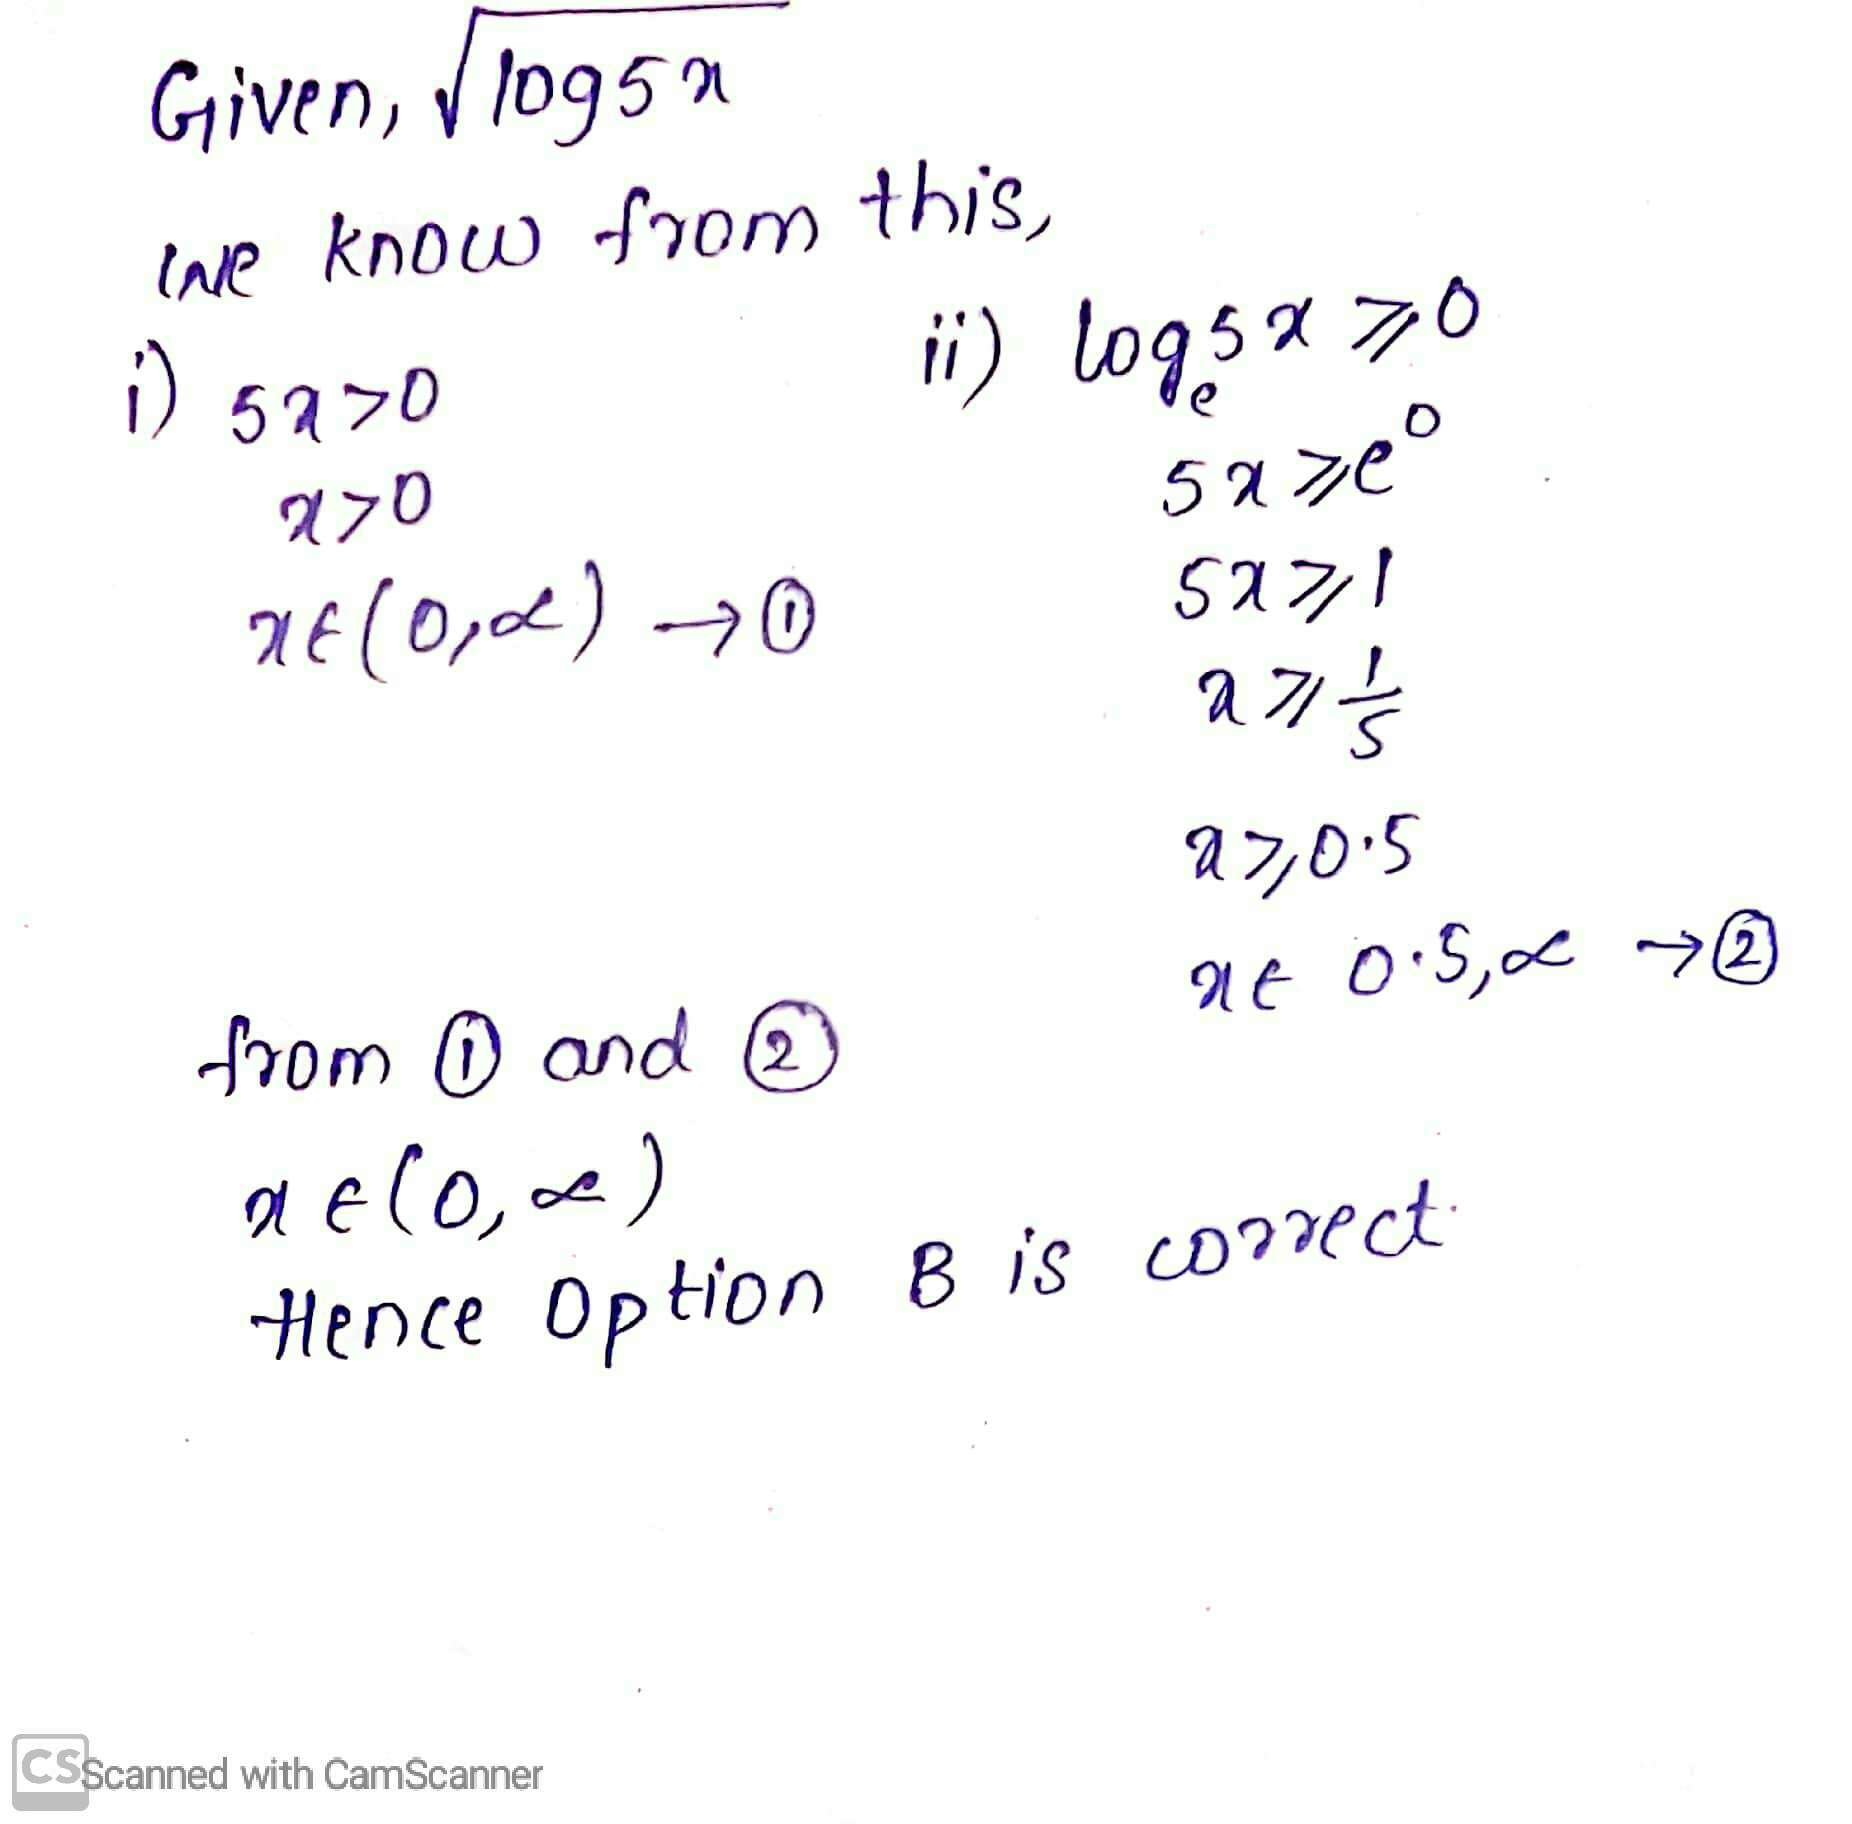 Given, √log5x
we know from this,
i) 5x>0
x>0
x∈(0,∝) →①
ii) logₑ5x ⩾0
5x ⩾e⁰
5x⩾1
x⩾1/5
x⩾0.5
x∈ 0.5,∝ →②
from ① and ②
x∈(0,∝)
Hence Option B is correct.
CS Scanned with CamScanner